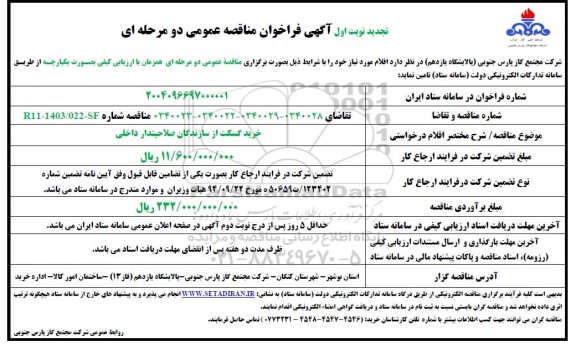 تجدید نوبت اول آگهی فراخوان مناقصه عمومی دو مرحله ای
شرکت مجتمع گاز پارس جنوبی (پالایشگاه یازدهم) در نظر دارد اقلام مورد نیاز خود را با شرایط ذیل بصورت برگزاری مناقصه عمومی دو مرحله ای همزمان با ارزیابی کیفی بصورت یکپارچه از طریق
سامانه تدارکات الکترونیکی دولت (سامانه ستاد) تامین نماید:
شماره فراخوان در سامانه ستاد ایران
۲۰۰۴۰۹۶۶۹۷۰۰۰۰۰۱
شماره مناقصه و تقاضا
تقاضای ۰۳۴۰۰۲۸-۰۳۴۰۰۲۹-۰۳۴۰۰۲۲-۰۳۴۰۰۲۳ مناقصه شماره R11-1403/022-SF
موضوع مناقصه / شرح مختصر اقلام درخواستی
خرید گسکت از سازندگان صلاحیتدار داخلی
مبلغ تضمین شرکت در فرایند ارجاع کار
۱۱/۶۰۰/۰۰۰/۰۰۰ ریال
نوع تضمین شرکت درفرایند ارجاع کار
تضمین شرکت در فرایند ارجاع کار بصورت یکی از تضامین قابل قبول وفق آیین نامه تضمین شماره
۱۲۳۴۰۲/ت۵۰۶۵۹ه مورخ ۹۴/۰۹/۲۲ هیات وزیران و موارد مندرج در سامانه ستاد می باشد.
مبلغ برآوردی مناقصه
۲۳۲/۰۰۰/۰۰۰/۰۰۰ ریال
آخرین مهلت دریافت اسناد ارزیابی کیفی در سامانه ستاد
حداقل ۵ روز پس از درج نوبت دوم آگهی در صفحه اعلان عمومی سامانه ستاد ایران می باشد.
آخرین مهلت بارگذاری و ارسال مستندات ارزیابی کیفی
(رزومه)، اسناد مناقصه و پاکات پیشنهاد مالی در سامانه ستاد
ظرف مدت دو هفته پس از انقضای مهلت دریافت اسناد می باشد.
آدرس مناقصه گزار
استان بوشهر- شهرستان کنگان- شرکت مجتمع گاز پارس جنوبی-پالایشگاه یازدهم (فاز۱۳) -ساختمان امور کالا- اداره خرید
بدیهی است کلیه فرآیند برگزاری مناقصه الکترونیکی از طریق درگاه سامانه تدارکات الکترونیکی دولت (سامانه ستاد) به نشانی: WWW.SETADIRAN.IR انجام می پذیرد و به پیشنهاد های خارج از سامانه ستاد هیچگونه ترتیب
اثری داده نخواهد شد و مناقصه گران بایستی نسبت به ثبت نام در سامانه ستاد و دریافت گواهی امضاء الکترونیکی اقدام نمایند.
مناقصه گران می توانند جهت کسب اطلاعات بیشتر با شماره تلفن کارشناسان خرید: (۴۵۴۶-۴۵۴۷-۴۵۴۸ - ۰۷۷۳۲۳۱) تماس حاصل فرمایند.
روابط عمومی شرکت مجتمع گاز پارس جنوبی